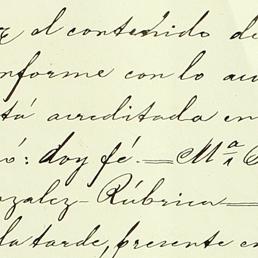 el contenido de
nforme con lo au
tá acreditada en
ó: doy fé.—Mª
nzalez—Rúbrica—
la tarde, presente en